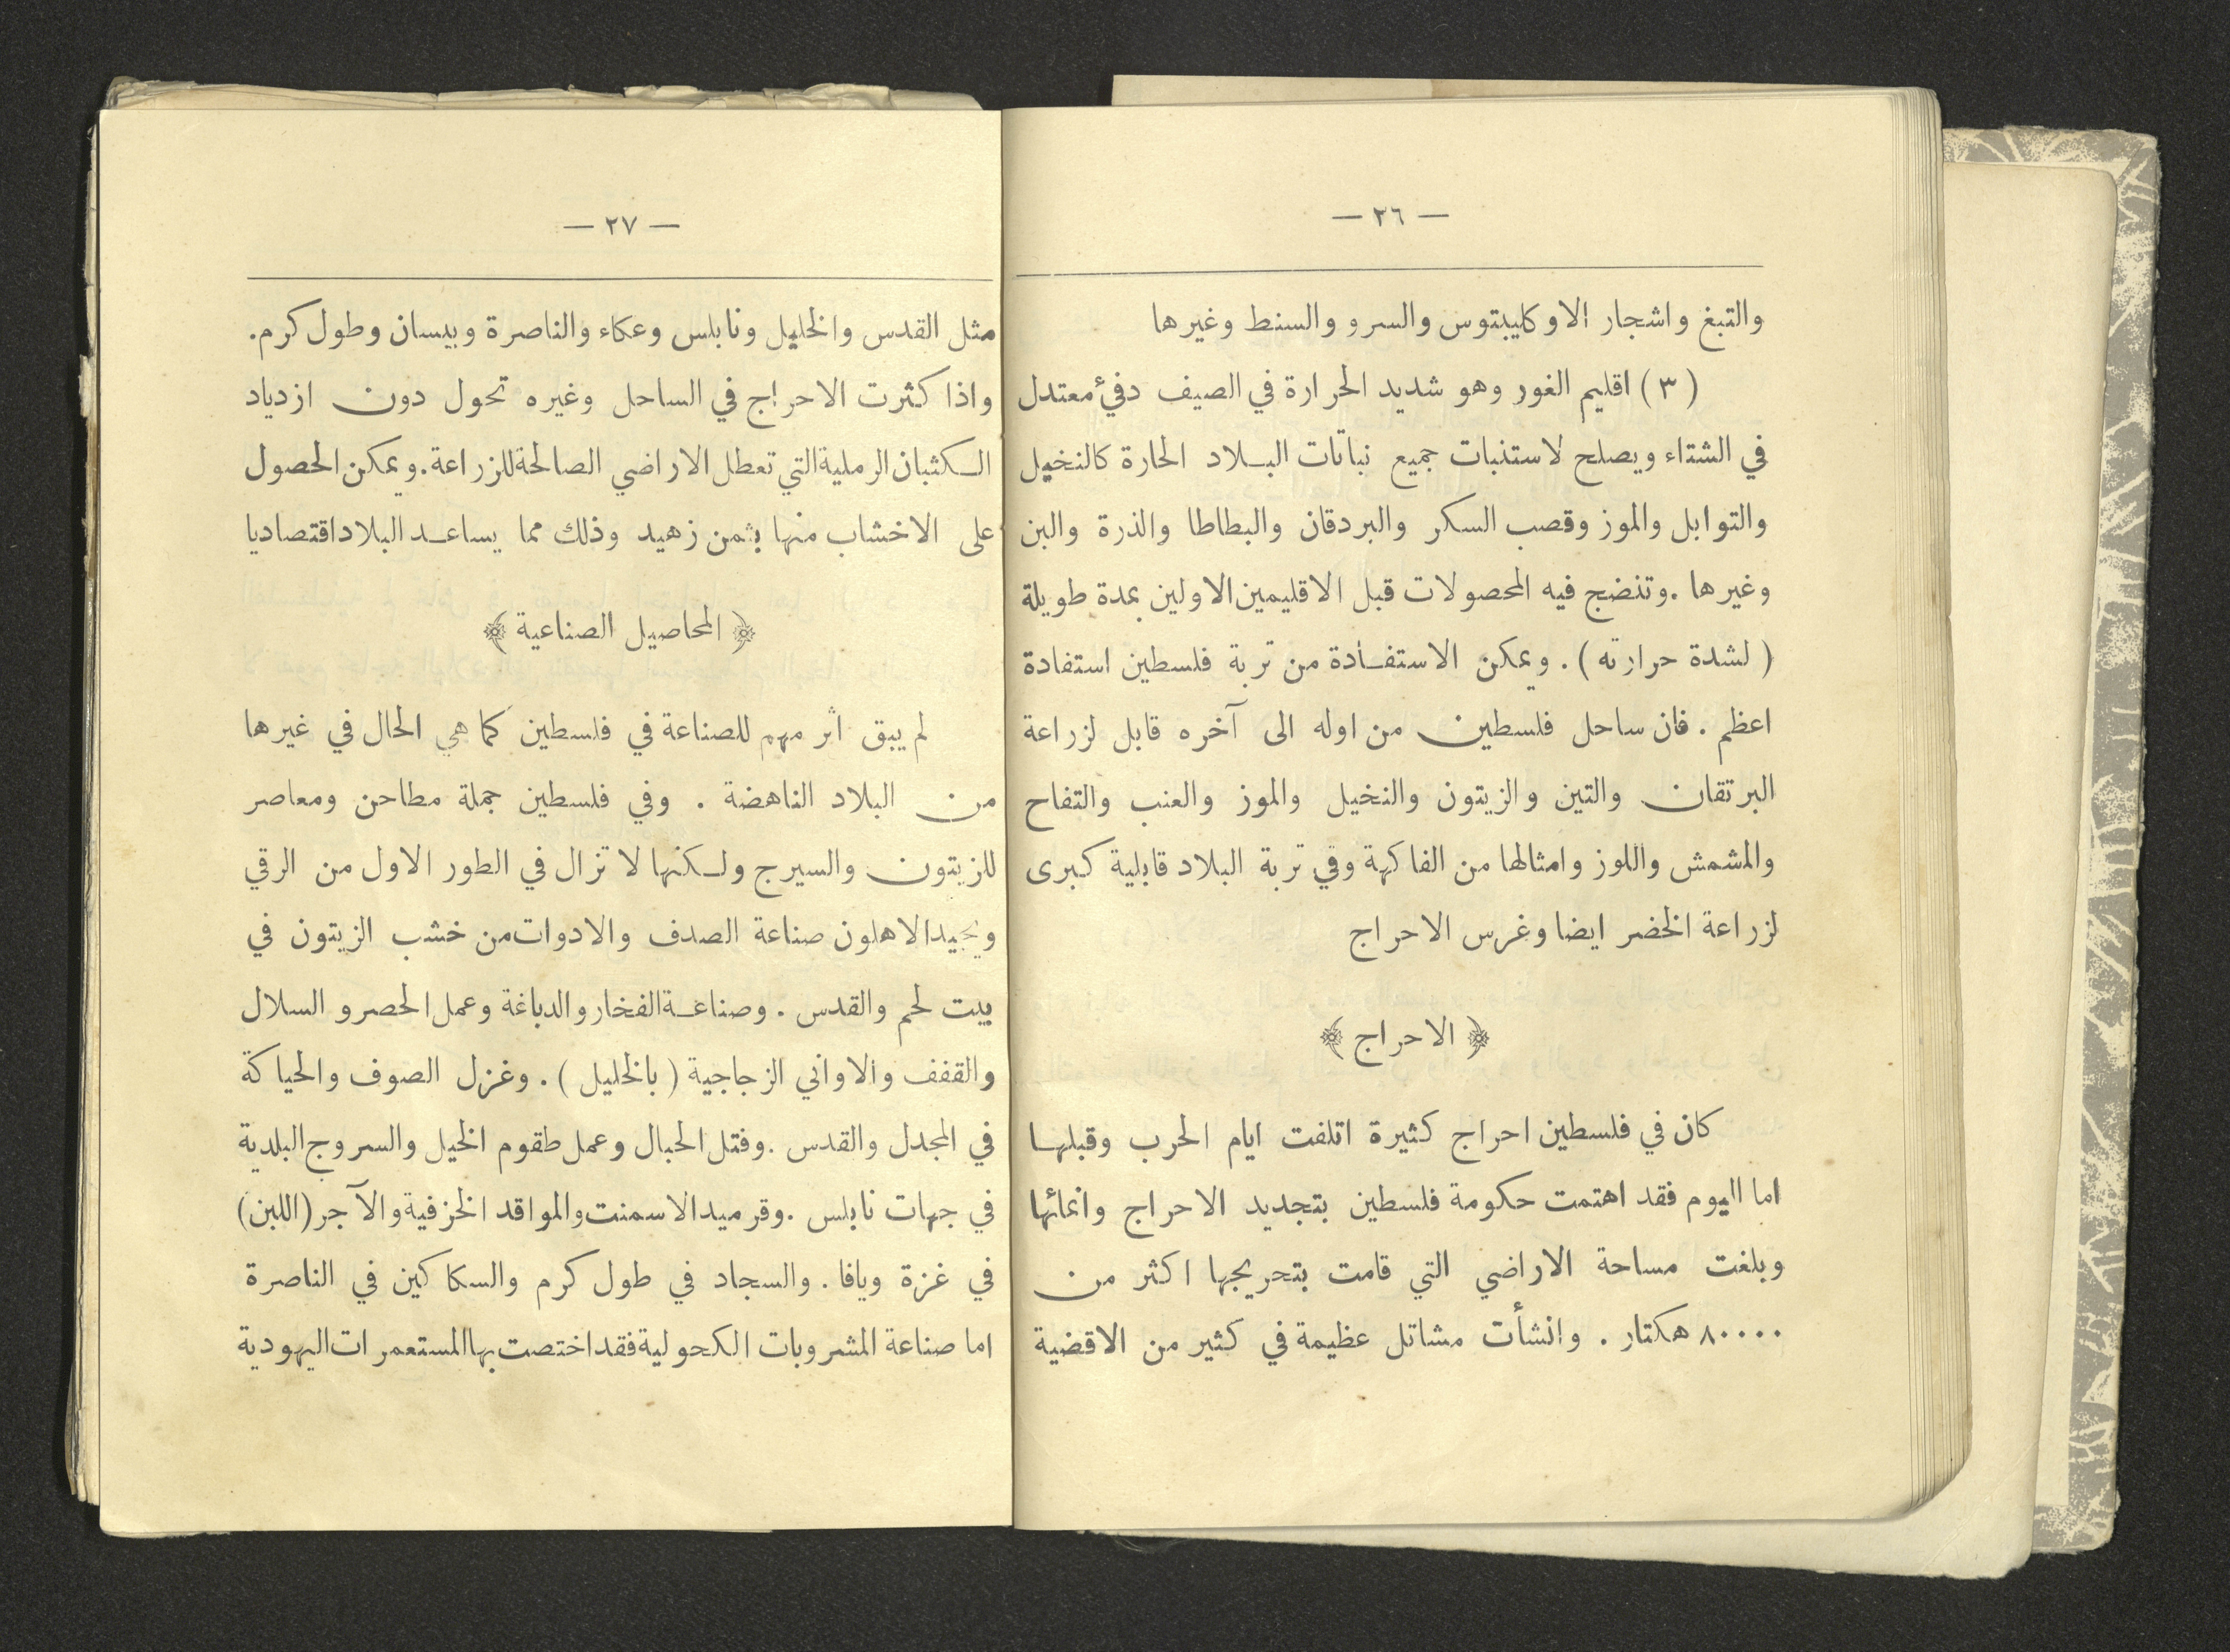 — ٢٦ —
والتبغ واشجار الاوكليبتوس والسرو والسنط وغيرها
( ٣ ) اقليم الغور وهو شديد الحرارة في الصيف دفئ معتدل
في الشتاء ويصلح لاستنبات جميع نباتات البلاد الحارة كالنخيل
والتوابل والموز وقصب السكر والبردقان والبطاطا والذرة والبن
وغيرها . وتنضج فيه المحصولات قبل الاقليمين الاولين بمدة طويلة
( لشدة حرارته ) . ويمكن الاستفادة من تربة فلسطين استفادة
اعظم . فان ساحل فلسطين من اوله الى آخره قابل لزراعة
البرتقان والتين والزيتون والنخيل والموز والعنب والتفاح
والمشمش واللوز وامثالها من الفاكهة وفي تربة البلاد قابلية كبرى
لزراعة الخضر ايضا وغرس الاحراج
﴿ الاحراج ﴾
كان في فلسطين احراج كثيرة اتلفت ايام الحرب وقبلها
اما اليوم فقد اهتمت حكومة فلسطين بتجديد الاحراج وانمائها
وبلغت مساحة الاراضي التي قامت بتحريجها اكثر من
٨٠٠٠٠ هكتار . وانشأت مشاتل عظيمة في كثير من الاقضية
— ٢٧ —
مثل القدس والخليل ونابلس وعكاء والناصرة وبيسان وطول كرم .
واذا كثرت الاحراج في الساحل وغيره تحول دون ازدياد
الكثبان الرملية التي تعطل الاراضي الصالحة للزراعة . ويمكن الحصول
على الاخشاب منها بثمن زهيد وذلك مما يساعد البلاد اقتصاديا
﴿ المحاصيل الصناعية ﴾
لم يبق اثر مهم للصناعة في فلسطين كما هي الحال في غيرها
من البلاد الناهضة . وفي فلسطين جملة مطاحن ومعاصر
للزيتون والسيرج ولكنها لا تزال في الطور الاول من الرقي
ويجيد الاهلون صناعة الصدف والادوات من خشب الزيتون في
بيت لحم والقدس . وصناعة الفخار والدباغة وعمل الحصر و السلال
والقفف والاواني الزجاجية ( بالخليل ) . وغزل الصوف والحياكة
في المجدل والقدس . وفتل الحبال وعمل طقوم الخيل والسروج البلدية
في جهات نابلس . وقرميد الاسمنت والمواقد الخزفية والآجر ( اللبن )
في غزة ويافا . والسجاد في طول كرم والسكاكين في الناصرة
اما صناعة المشروبات الكحولية فقد اختصت بها المستعمرات اليهودية